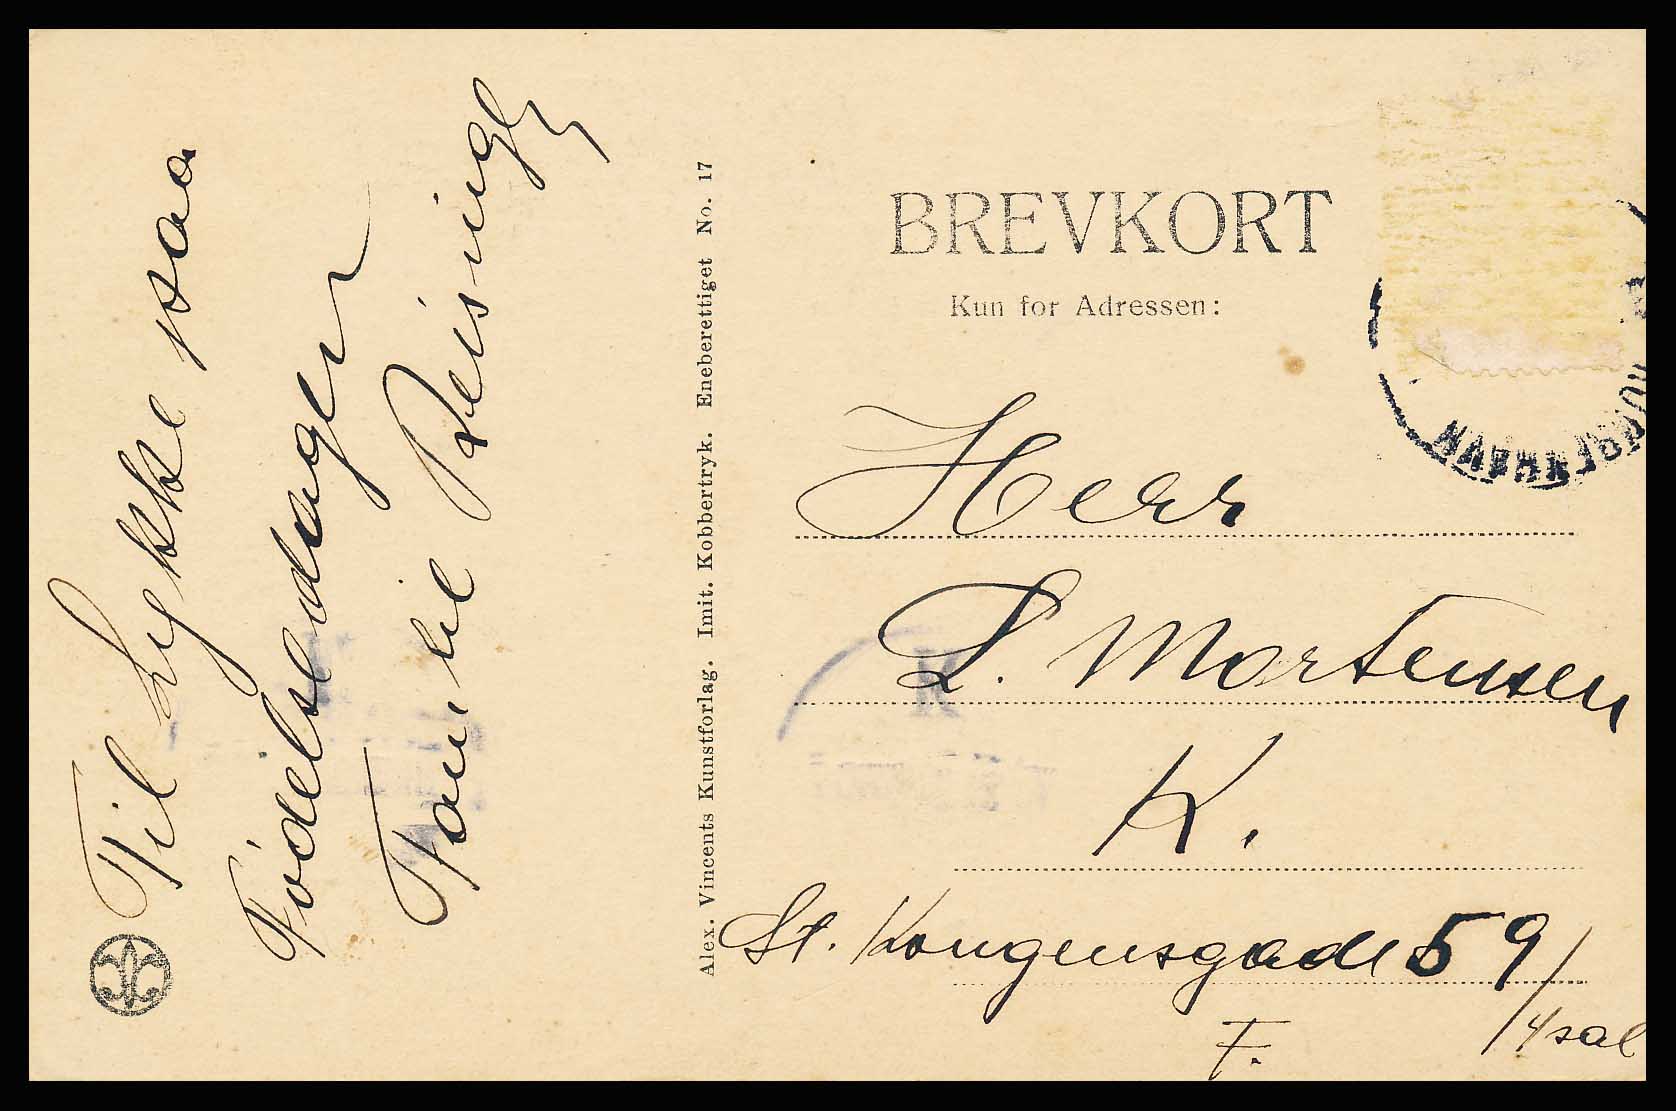 Til Lykke paa
Födelsedagen
Familie Reisinger
Alex. Vincents Kunstforlag. Imit. Kobbertryk. Eneberettiget No. 17
BREVKORT
Kun for Adressen:
KJØBENHAVN
Herr
L. Mortensen
K.
St. Kongensgade 59
4 sal
F.